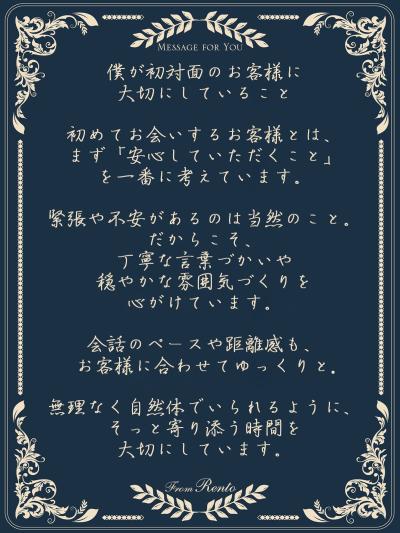 MESSAGE FOR YOU
僕が初対面のお客様に
大切にしていること
初めてお会いするお客様とは、
まず「安心していただくこと」
を一番に考えています。
緊張や不安があるのは当然のこと。
だからこそ、
丁寧な言葉づかいや
穏やかな雰囲気づくりを
心がけています。
会話のペースや距離感も、
お客様に合わせてゆっくりと。
無理なく自然体でいられるように、
そっと寄り添う時間を
大切にしています。
From Rento